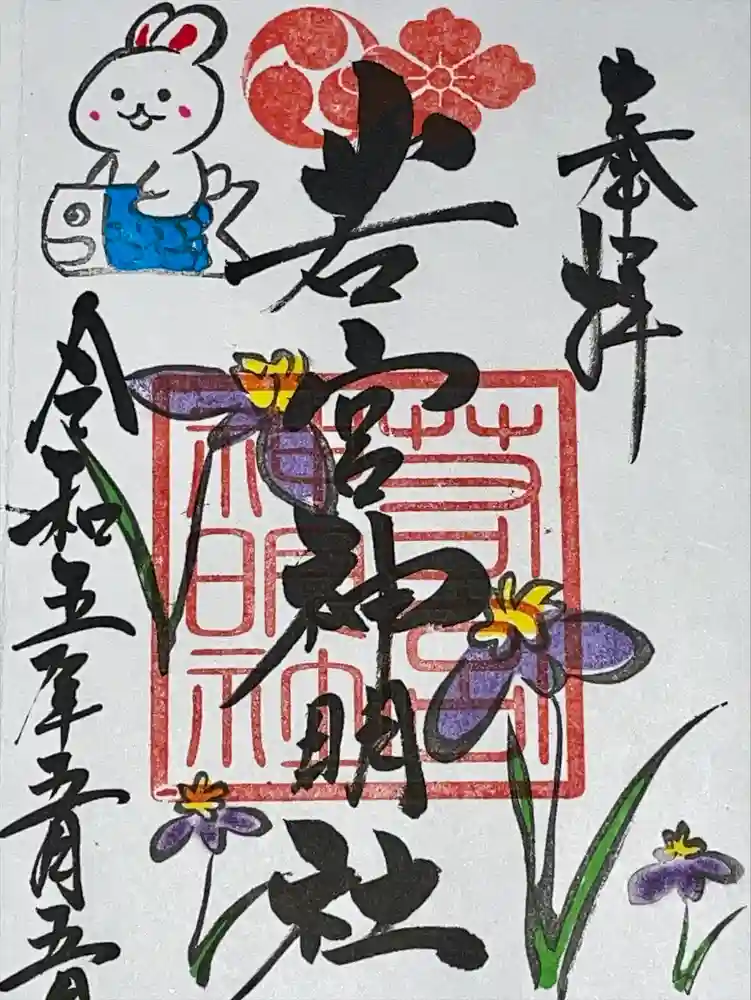 奉拝
若宮神明社
若宮神明社
令和五年五月五日